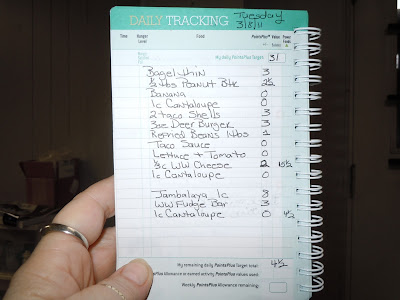 DAILY TRACKING
Tuesday
3/8/11
Time Hunger Level Food PointsPlus® Value Power Foods
My daily PointsPlus Target: 31
Bagel thin 3
Peanut Btr
Banana 0
1c Cantaloupe 0
2 taco Shells 3
3oz Deer Burger 3
Refried Beans 1
Taco Sauce 0
Lettuce + Tomato 0
WW Cheese 2
1c Cantaloupe 0
Jambalaya 1c 8
WW Fudge Bar 3
1c Cantaloupe 0 4½
My remaining daily PointsPlus Target total: 4½
PointsPlus Allowance or earned activity PointsPlus values used:
Weekly PointsPlus Allowance remaining: